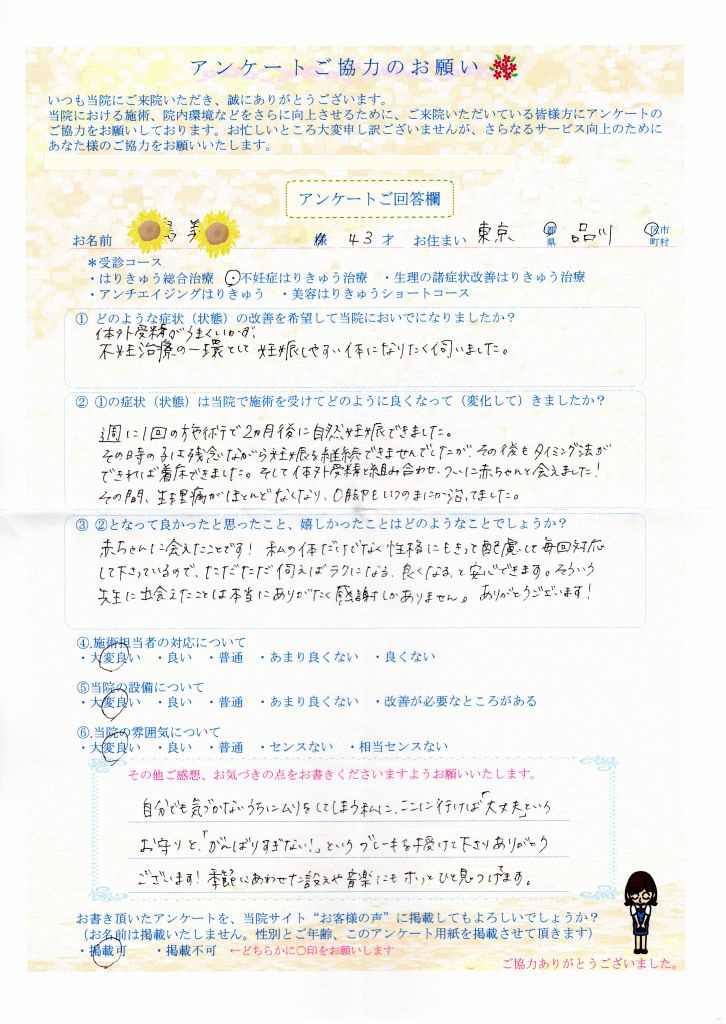 アンケートご協力のお願い
いつも当院にご来院いただき、誠にありがとうございます。
当院における施術、院内環境などをさらに向上させるために、ご来院いただいている皆様方にアンケートの
ご協力をお願いしております。お忙しいところ大変申し訳ございませんが、さらなるサービス向上のために
あなた様のご協力をお願いいたします。
アンケートご回答欄
お名前 美 様 43才 お住まい 東京 都県 品川 区市町村
＊受診コース
・はりきゅう総合治療 ・不妊症はりきゅう治療 ・生理の諸症状改善はりきゅう治療
・アンチエイジングはりきゅう ・美容はりきゅうショートコース
① どのような症状（状態）の改善を希望して当院においでになりましたか？
体外受精がうまくいかず、
不妊治療の一環として 妊娠しやすい体になりたく伺いました。
② ①の症状（状態）は当院で施術を受けてどのように良くなって（変化して）きましたか？
週に1回の施術で2ヵ月後に自然妊娠できました。
その時の子は残念ながら妊娠を継続できませんでしたが、その後もタイミング法が
できれば着床できました。そして体外受精と組み合わせ、ついに赤ちゃんと会えました！
その間、生理痛がほとんどなくなり、O脚もいつのまにか治ってました。
③ ②となって良かったと思ったこと、嬉しかったことはどのようなことでしょうか？
赤ちゃんに会えたことです！ 私の体だけでなく性格にもきって配慮して毎回対応
して下さっているので、ただただ伺えばラクになる、良くなる、と安心できます。そういう
先生に出会えたことは本当にありがたく感謝しかありません。ありがとうございます！
④.施術担当者の対応について
・大変良い ・良い ・普通 ・あまり良くない ・良くない
⑤当院の設備について
・大変良い ・良い ・普通 ・あまり良くない ・改善が必要なところがある
⑥.当院の雰囲気について
・大変良い ・良い ・普通 ・センスない ・相当センスない
その他ご感想、お気づきの点をお書きくださいますようお願いいたします。
自分でも気づかないうちにムリをしてしまう私に、ここに行けば「大丈夫」という
お守りと、「がんばりすぎない！」というブレーキを授けて下さりありがとう
ございます！季節にあわせた設えや音楽にもホッとひと息つけてます。
お書き頂いたアンケートを、当院サイト“お客様の声”に掲載してもよろしいでしょうか？
（お名前は掲載いたしません。性別とご年齢、このアンケート用紙を掲載させて頂きます）
・掲載可 ・掲載不可 ←どちらかに○印をお願いします
ご協力ありがとうございました。